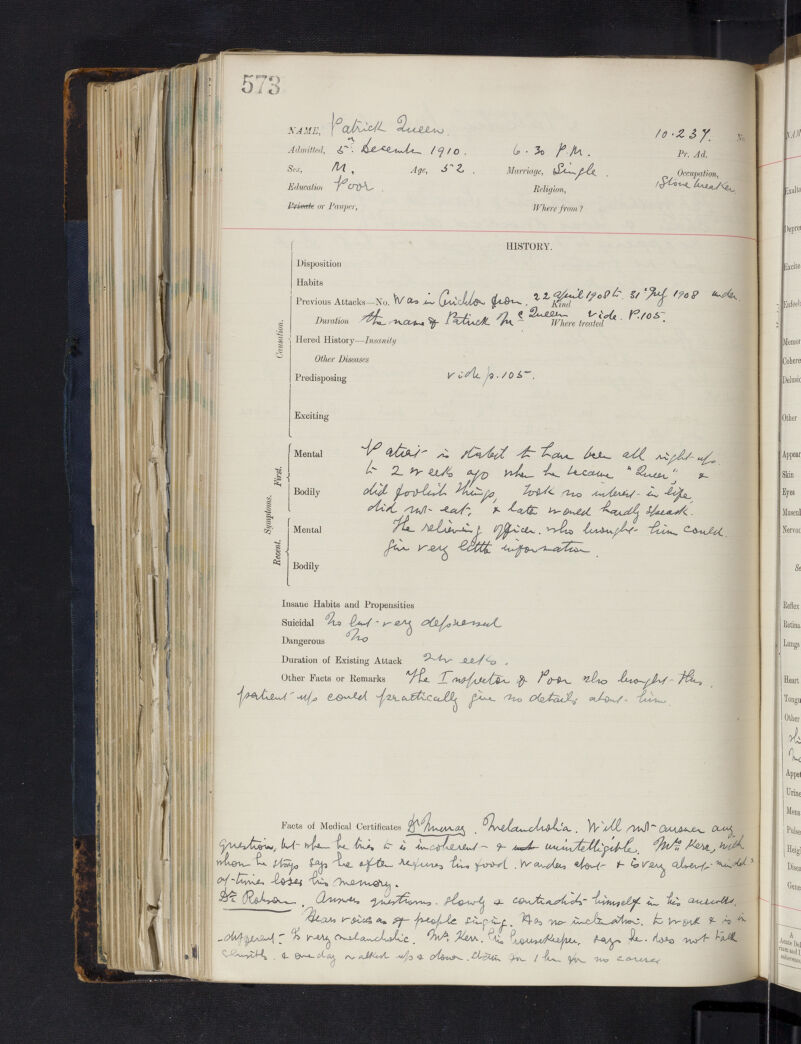 573
NAME, Patrick Queen. 10.237. No
Admitted, 5th December 1910. 6.30 P.M. Pr. Ad.
Sex, M. Age, 52. Marriage, Single. Occupation,
Education Poor. Religion, Stone breaker
Private or Pauper, Where from?
HISTORY.
Disposition
Habits
Previous Attacks—No. Was in Crichton from 22 April 1908 to 31st July 1908 under
Kind
Duration the name of Patrick Mc Queen vide P.105.
Where treated
Hered History—Insanity
Other Diseases
Predisposing vide p.105.
Exciting
Causation.
Mental Patient is stated to have been all right up
to 2 weeks ago when he became "Queer", &
Bodily did foolish things, took no interest in life,
did not eat, & late would hardly speak.
Mental The relieving officer who brought him could
give very little information.
Bodily
Symptoms.
First.
Recent.
Insane Habits and Propensities
Suicidal No but very depressed
Dangerous No
Duration of Existing Attack 2 weeks.
Other Facts or Remarks The Inspector of Poor who brought this
patient up could practically give no details about him.
Facts of Medical Certificates Dr Murray. Melancholia. Will not answer any
questions, but when he tries to is incoherent & unintelligible. Mrs Kerr, with
whom he stays says he often refuses his food. Wanders about & is very absent minded &
at times loses his memory.
Dr Robson. Answers questions slowly & contradicts himself in his answers.
Hears voices as of people singing. Has no inclination to work & is in
-different. Is very melancholic. Mrs Kerr, his housekeeper, says he does not talk
& one day walked up & down for 1 hr for no cause